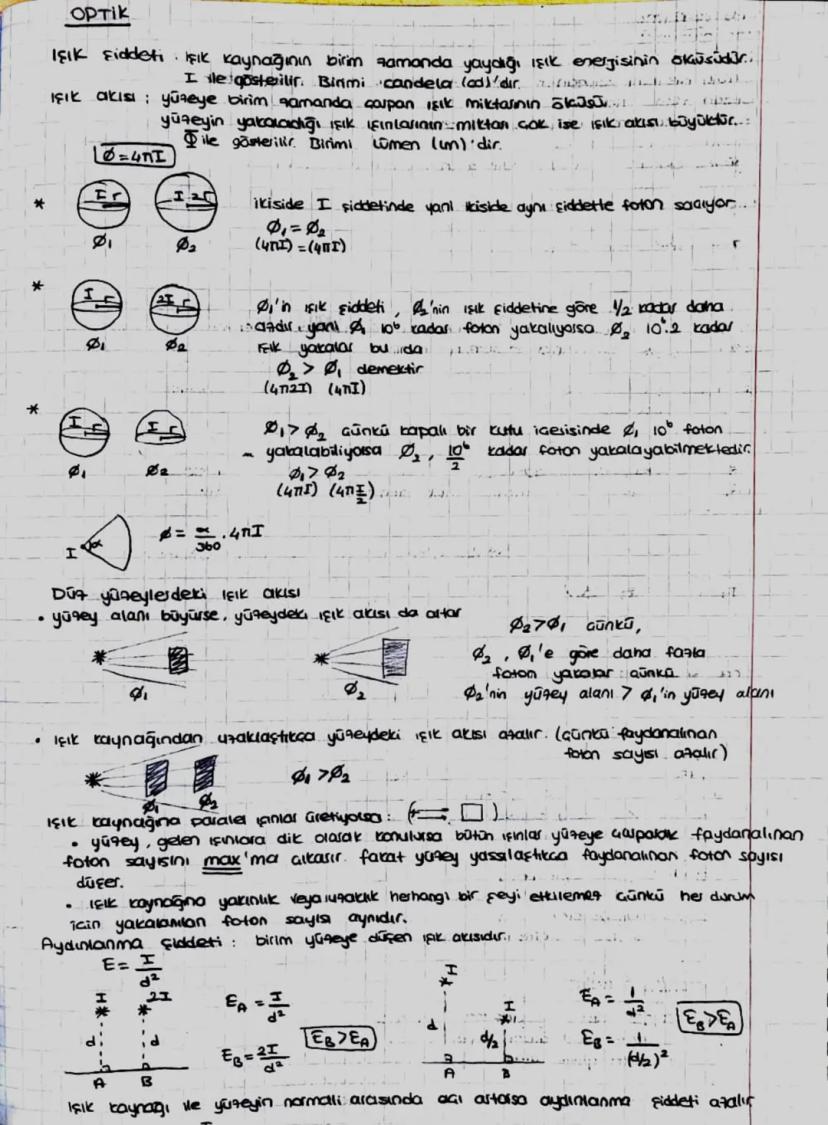 OPTİK
Işık şiddeti : ışık kaynağının birim zamanda yaydığı ışık enerjisinin ölçüsüdür.
I ile gösterilir. Birimi candela (cd)'dır.
Işık akısı : yüzeye birim zamanda çarpan ışık miktarının ölçüsü.
yüzeyin yakaladığı ışık ışınlarının miktarı çok ise ışık akısı büyüktür.
Φ ile gösterilir. Birimi lümen (lm)'dir.
Ø=4πI
* I r I 2r ikiside I şiddetinde yani ikiside aynı şiddette foton saçıyor.
Ø₁ Ø₂ Ø₁ = Ø₂
(4πI) = (4πI)
r
* I r 2I r Ø₁'in ışık şiddeti, Ø₂'nin ışık şiddetine göre 1/2 kadar daha
azdır yani Ø₁ 10⁶ kadar foton yakalıyorsa Ø₂ 10⁶.2 kadar
Ø₁ Ø₂ ışık yakalar bu da
Ø₂ > Ø₁ demektir
(4π2I) (4πI)
* I r I r Ø₁ > Ø₂ çünkü kapalı bir kutu içerisinde Ø₁ 10⁶ foton
yakalabiliyorsa Ø₂, 10⁶/2 kadar foton yakalayabilmektedir.
Ø₁ Ø₂ Ø₁ > Ø₂
(4πI) (4π I/2)
I α Ø = α/360 . 4πI
Düz yüzeylerdeki ışık akısı
• yüzey alanı büyürse, yüzeydeki ışık akısı da artar
Ø₂ > Ø₁ çünkü,
Ø₂, Ø₁'e göre daha fazla
foton yakalar çünkü
Ø₁ Ø₂ Ø₂'nin yüzey alanı > Ø₁'in yüzey alanı
• ışık kaynağından uzaklaştıkça yüzeydeki ışık akısı azalır. (çünkü faydanalınan
foton sayısı azalır)
Ø₁ > Ø₂
Ø₁ Ø₂
Işık kaynağına paralel ışınlar üretiyorsa :
• yüzey, gelen ışınlara dik olarak konulursa bütün ışınlar yüzeye çarparak faydanalınan
foton sayısını max'ma çıkarır. fakat yüzey yassılaştıkça faydanalınan foton sayısı
düşer.
• ışık kaynağına yakınlık veya uzaklık herhangi bir şeyi etkilemez çünkü her durum
için yakalanılan foton sayısı aynıdır.
Aydınlanma şiddeti : birim yüzeye düşen ışık akısıdır.
E = I/d²
I 2I
d d
A B
E_A = I/d²
E_B = 2I/d²
E_B > E_A
I I
d d/2
A B
E_A = 1/d²
E_B = 1/(d/2)²
E_B > E_A
Işık kaynağı ile yüzeyin normali arasında açı artarsa aydınlanma şiddeti azalır